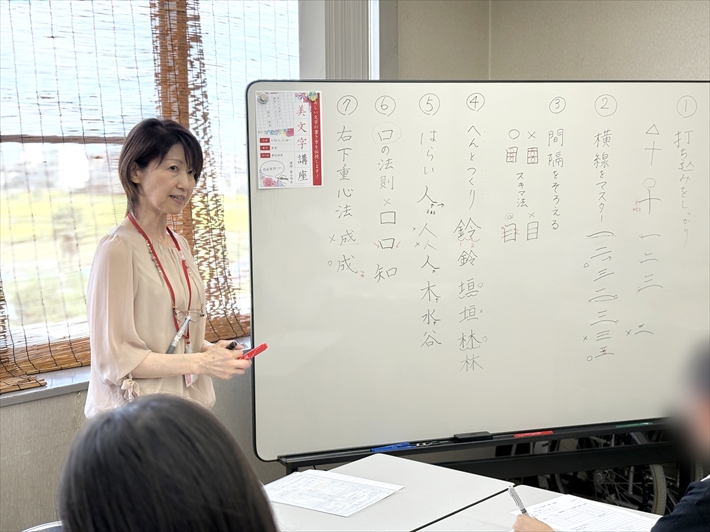 ① 打ち込みをしっかり
△ 十 一 二 三
× 二
② 横線をマスター 一 二 三 二 三 三 五
③ 間隔をそろえる
× ○ スキマ法 × ◎
④ へんとつくり 鈴 鈴 垣 垣 林 林
⑤ はらい 人 人 人 人 木 水 谷
⑥ 口の法則 × 口 口 知
⑦ 右下重心法 成 成
美文字講座